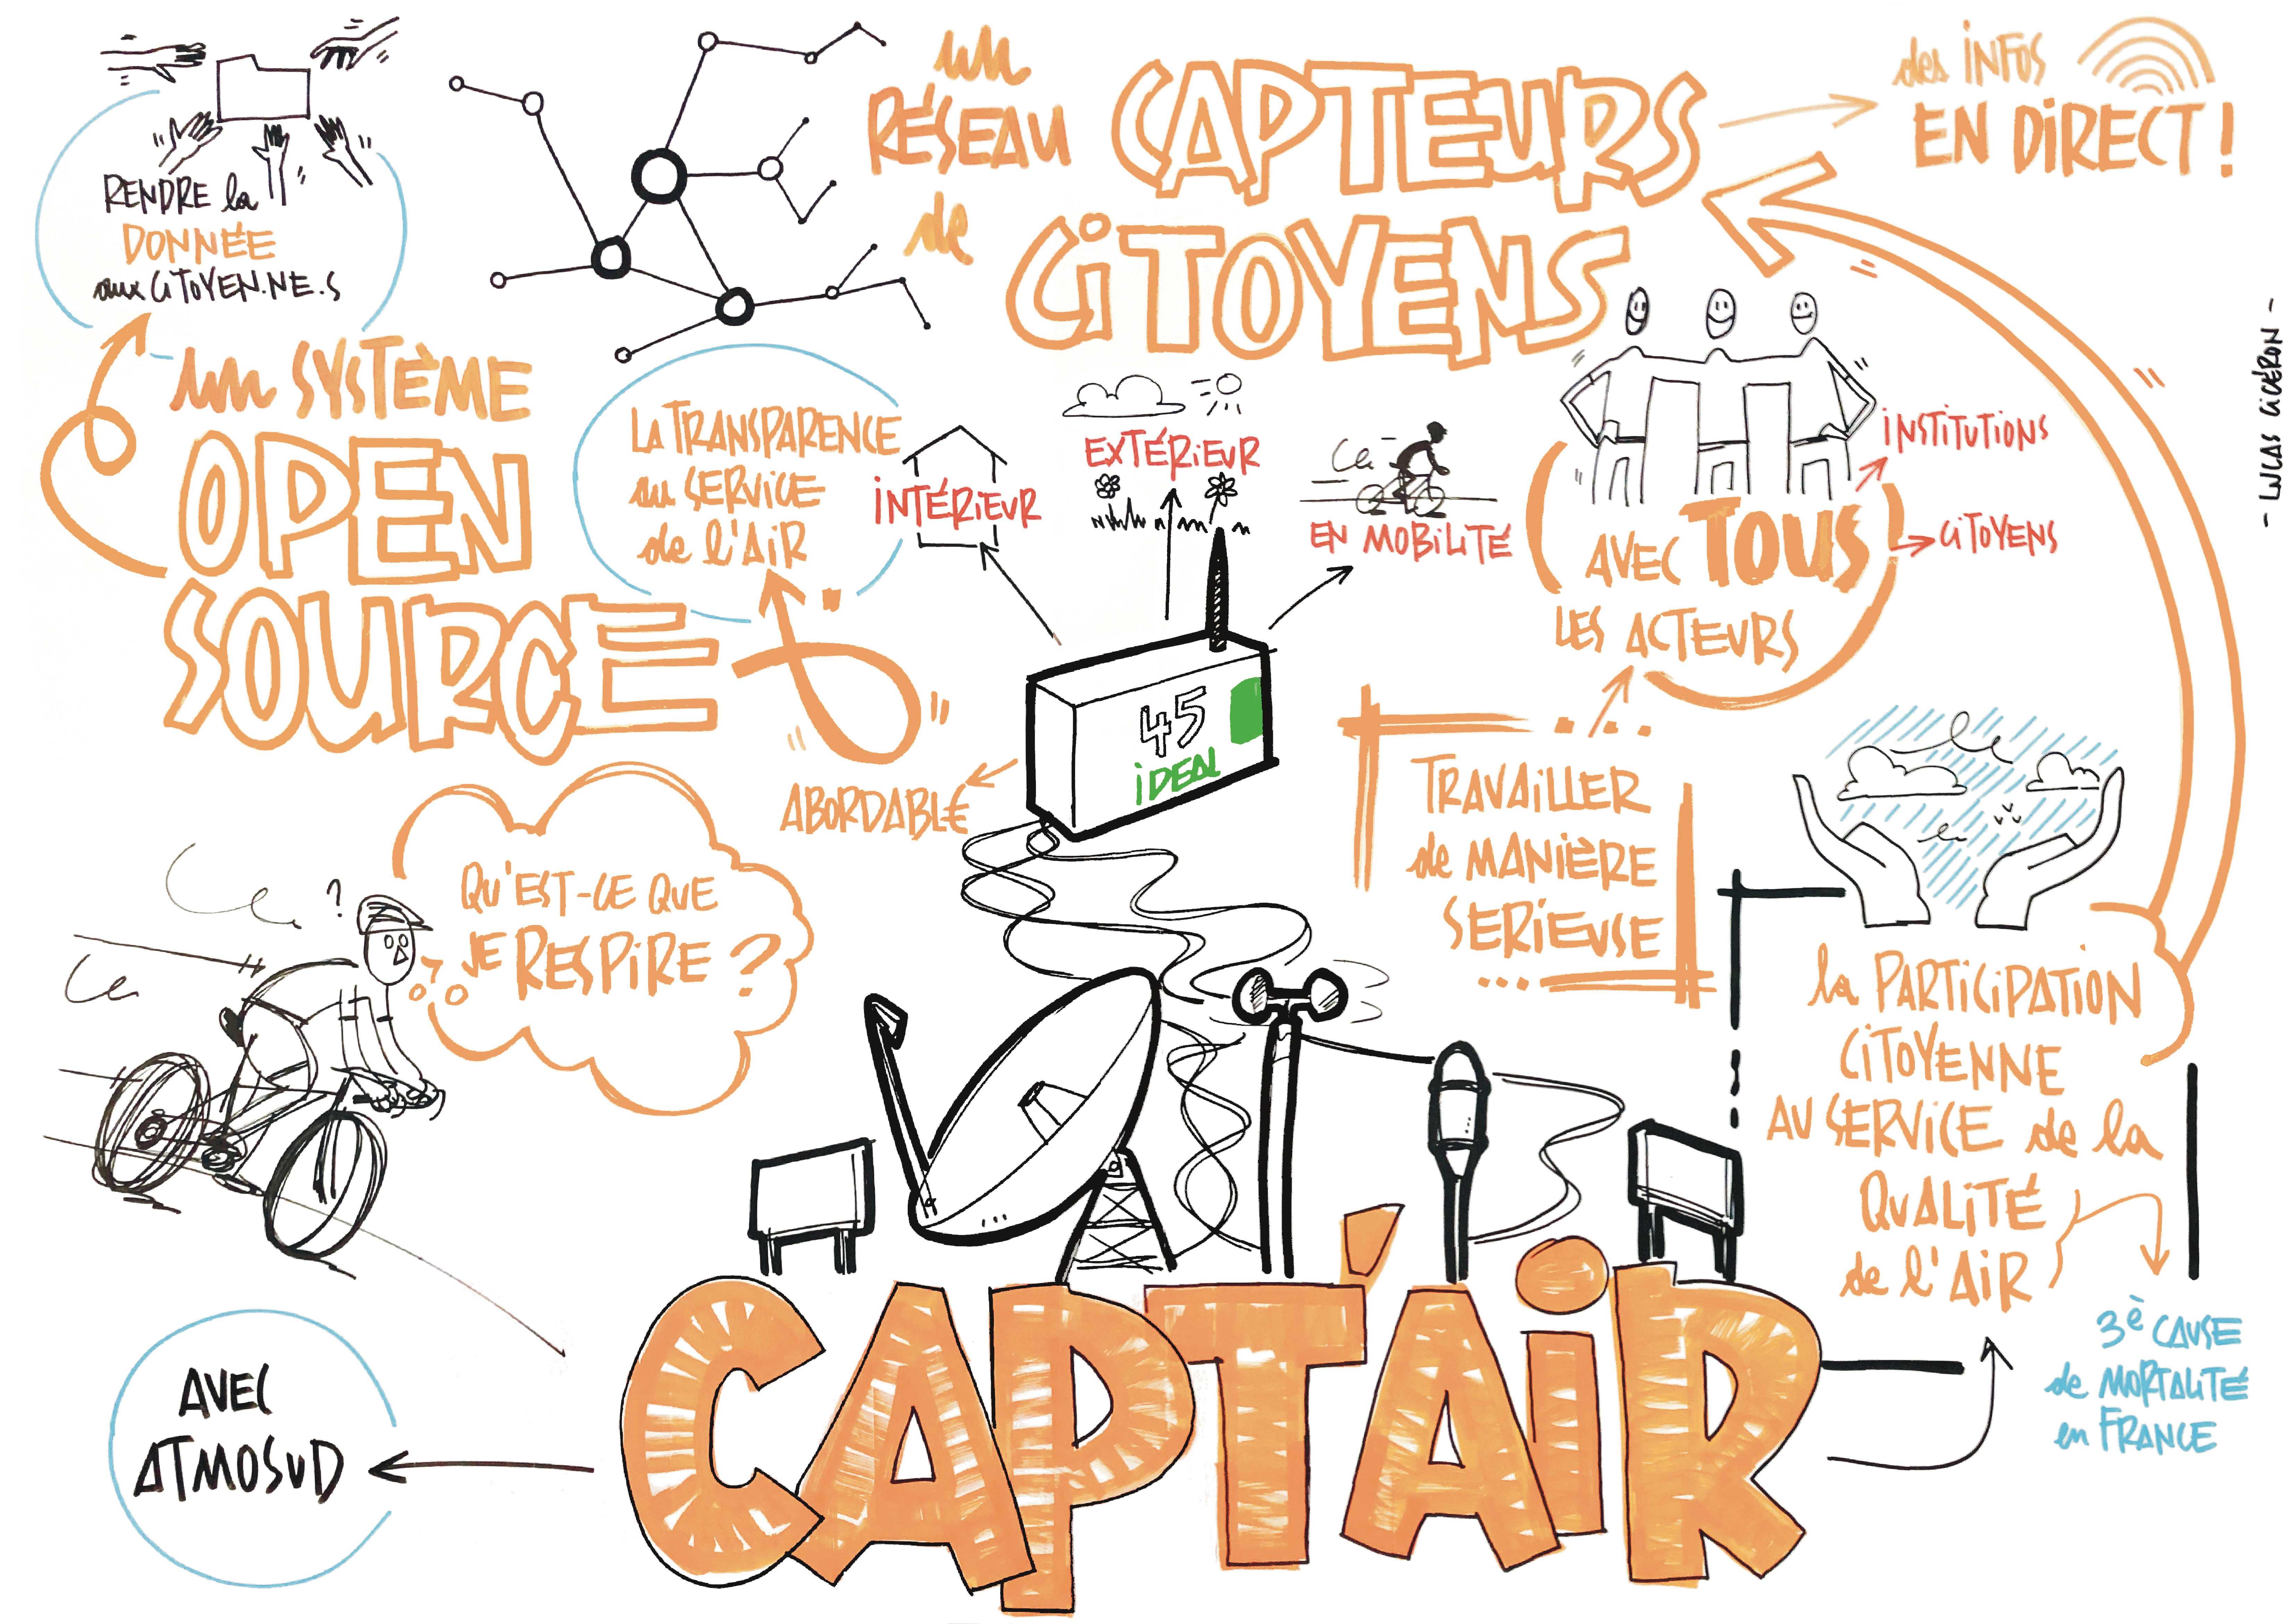 RENDRE la
DONNÉE
aux CiTOYEN.NE.S
un SYSTÈME
OPEN
SOURCE
un
RÉSEAU
de
CAPTEURS
CiTOYENS
des iNFOS
EN DiRECT !
LA TRANSPARENCE
au SERViCE
de l'AiR
iNTÉRiEUR
EXTÉRiEUR
EN MOBiLiTÉ
AVEC TOUS
LES ACTEURS
iNSTiTUTiONS
CiTOYENS
- LUCAS CiCÉRON -
45
iDEAL
ABORDABLE
TRAVAiLLER
de MANiÈRE
SERiEUSE
...
?
QU'EST-CE QUE
JE RESPiRE ?
la PARTiCiPATiON
CiTOYENNE
AU SERViCE de la
QUALiTÉ
de l'AiR
3è CAUSE
de MORTALiTÉ
en FRANCE
AVEC
ATMOSUD
CAPT'AiR